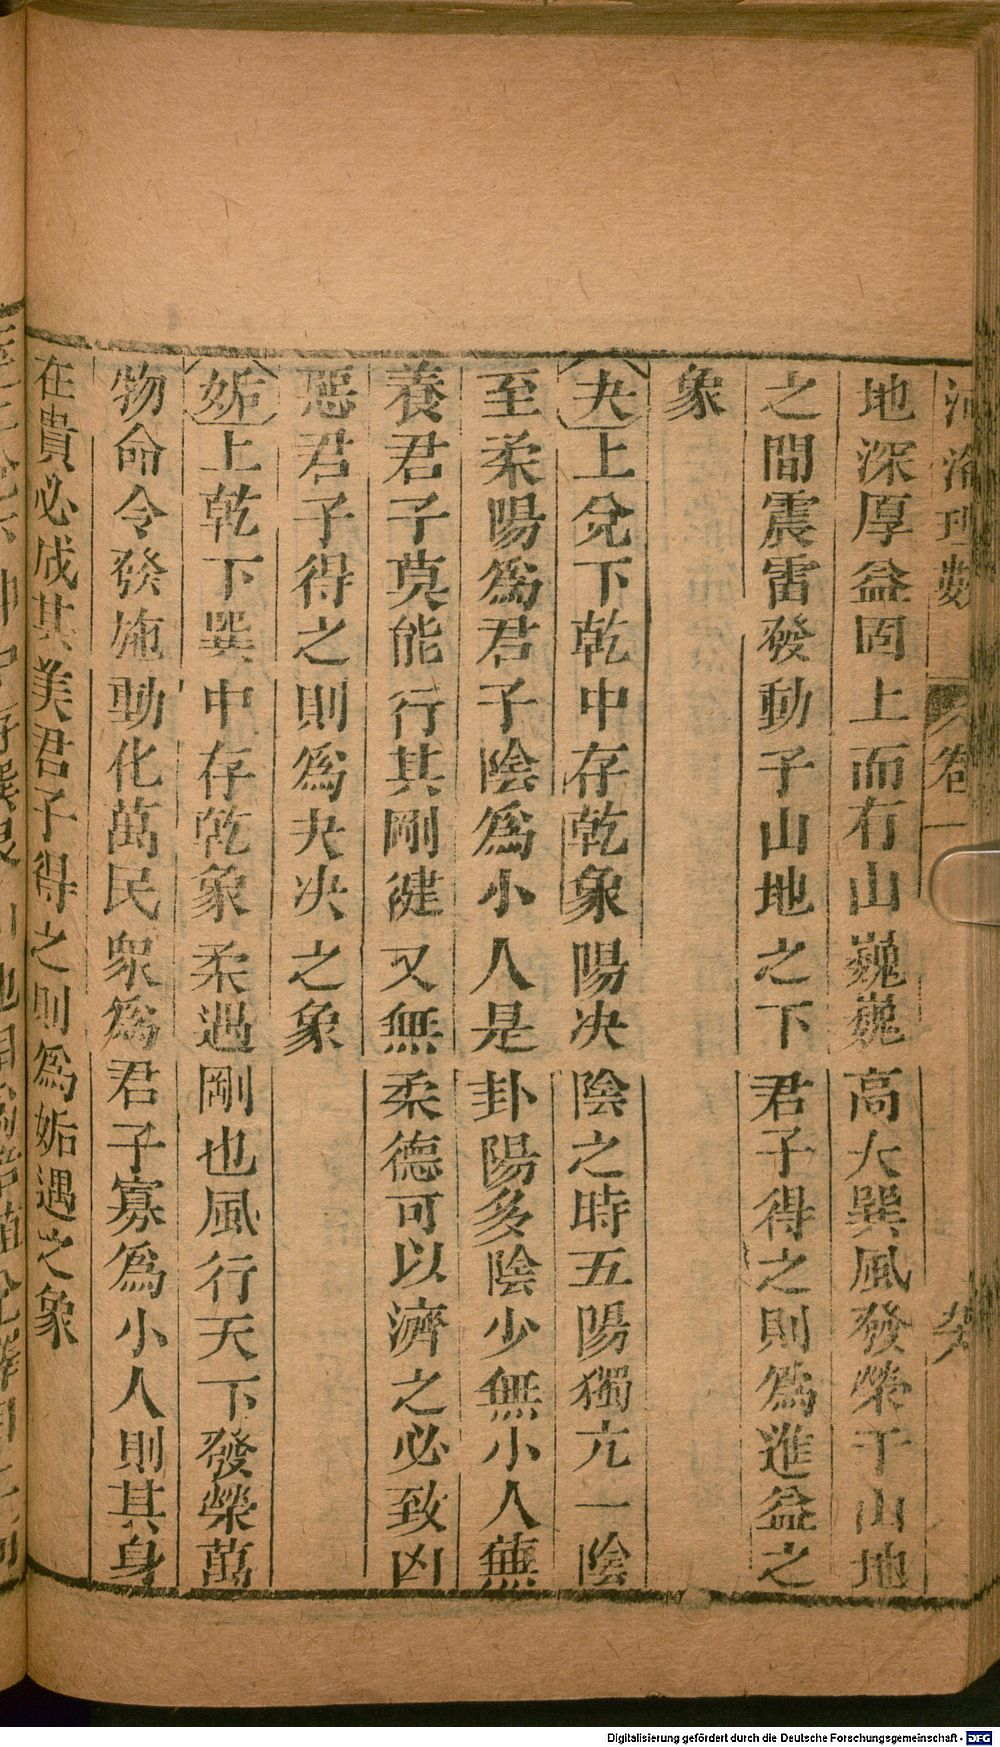 河洛理數 卷一
地深厚益固上而有山巍巍高大巽風發榮于山地
之間震雷發動于山地之下君子得之則爲進益之
象
夬上兌下乾中存乾象陽决陰之時五陽獨亢一陰
至柔陽爲君子陰爲小人是卦陽多陰少無小人蕪
養君子莫能行其剛健又無柔德可以濟之必致凶
惡君子得之則爲夬决之象
姤上乾下巽中存乾象柔遇剛也風行天下發榮萬
物命令發施動化萬民衆爲君子寡爲小人則其身
在貴必成其美君子得之則爲姤遇之象
Digitalisierung gefördert durch die Deutsche Forschungsgemeinschaft - DFG